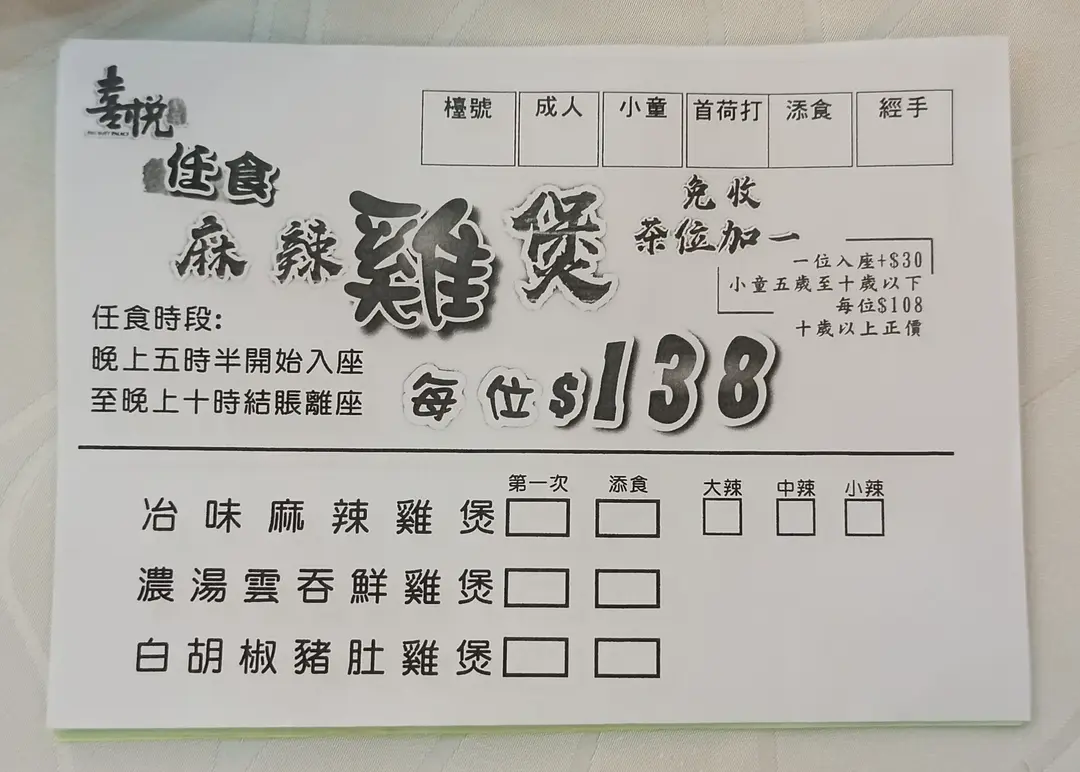 喜悅
檯號 成人 小童 首荷打 添食 經手
任食
麻辣雞煲
免收
茶位加一
一位入座+$30
小童五歲至十歲以下
每位$108
十歲以上正價
任食時段:
晚上五時半開始入座
至晚上十時結賬離座
每位$138
第一次 添食 大辣 中辣 小辣
冶味麻辣雞煲
濃湯雲吞鮮雞煲
白胡椒豬肚雞煲